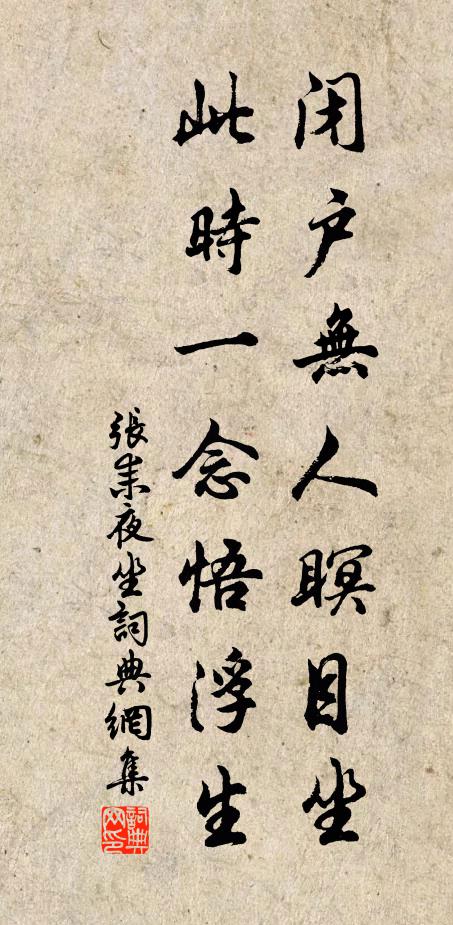 闭户無人瞑目坐
此時一念悟浮生
張耒夜坐詞典網集
詞典网印